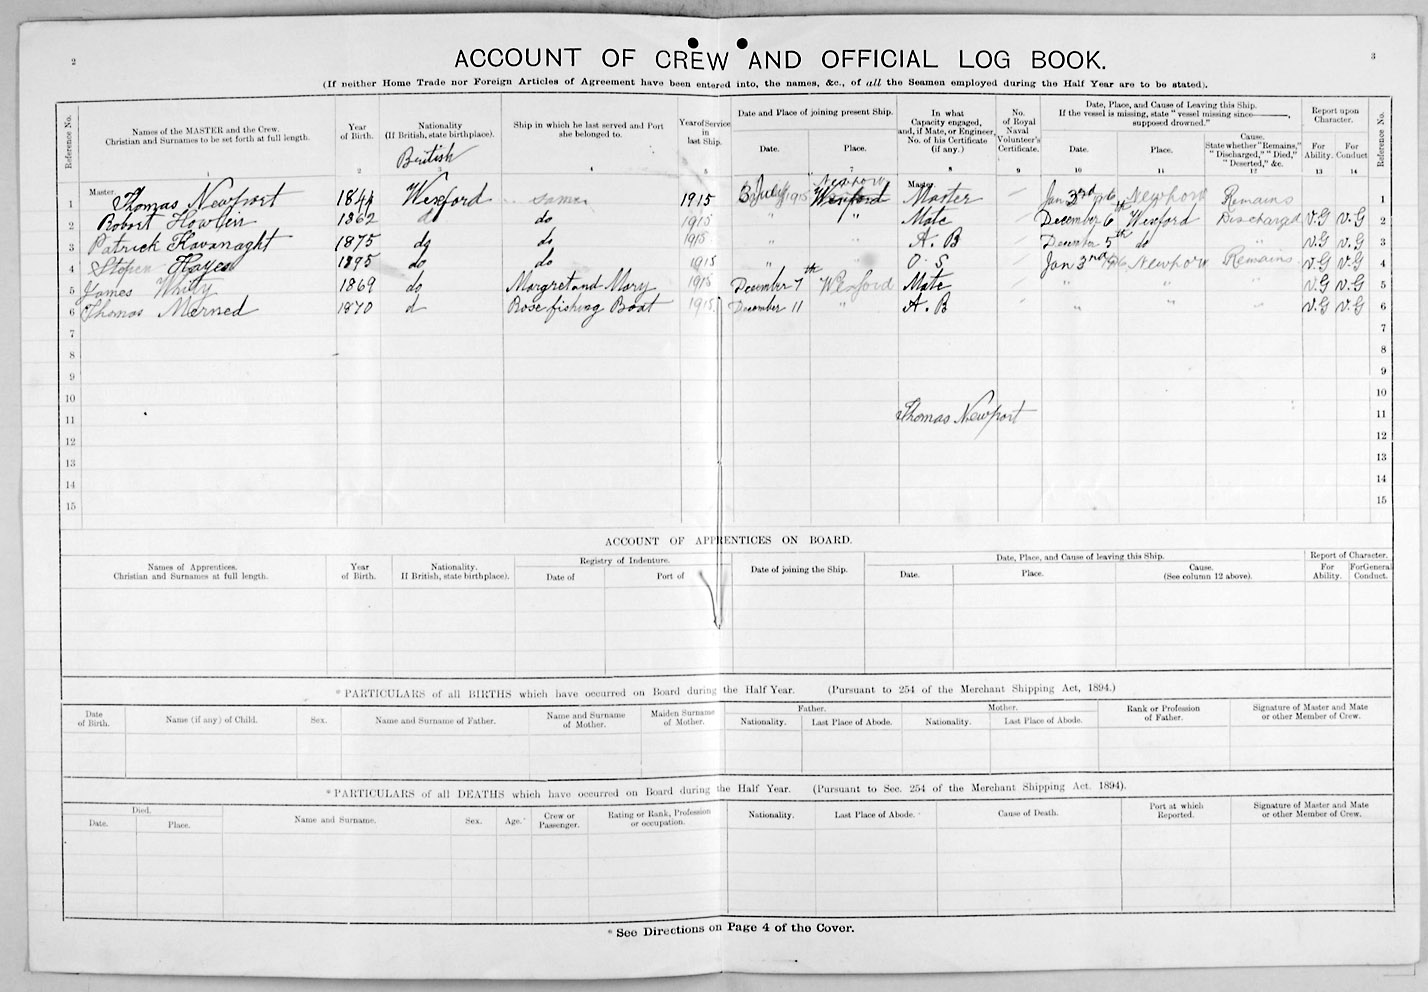 2
3
ACCOUNT OF CREW AND OFFICIAL LOG BOOK.
(If neither Home Trade nor Foreign Articles of Agreement have been entered into, the names, &c., of all the Seamen employed during the Half Year are to be stated).
Reference No.
Names of the MASTER and the Crew. Christian and Surnames to be set forth at full length. 1
Year of Birth. 2
Nationality (If British, state birthplace). 3 British
Ship in which he last served and Port she belonged to. 4
Year of Service in last Ship. 5
Date and Place of joining present Ship.
Date. 6
Place. 7
In what Capacity engaged, and, if Mate, or Engineer, No. of his Certificate (if any.) 8
No. of Royal Naval Volunteer's Certificate. 9
Date, Place, and Cause of Leaving this Ship. If the vessel is missing, state "vessel missing since———, supposed drowned."
Date. 10
Place. 11
Cause. State whether "Remains," "Discharged," "Died," "Deserted," &c. 12
Report upon Character.
For Ability. 13
For Conduct 14
Reference No.
1 Master. Thomas Newport 1844 Wexford same 1915 3 July 1915 Newport Wexford Master. Master Jan 3rd 1916 Newport Remains 1
2 Robert Howlin 1862 d do 1915 " " Mate December 6th Wexford Discharged V.G V.G 2
3 Patrick Kavanaght 1875 do do 1915 " " A. B December 5th do " V.G V.G 3
4 Stepen Hayes 1895 do do 1915 " " O. S Jan 3rd 1916 Newport Remains V.G V.G 4
5 James Whitty 1869 do Margret and Mary 1915 December 7th Wexford Mate " " " V.G V.G 5
6 Thomas Merned 1870 d Rose fishing Boat 1915 December 11 " A. B " " " V.G V.G 6
7 7
8 8
9 9
10 10
11 Thomas Newport 11
12 12
13 13
14 14
15 15
ACCOUNT OF APPRENTICES ON BOARD.
Names of Apprentices. Christian and Surnames at full length.
Year of Birth.
Nationality. If British, state birthplace).
Registry of Indenture.
Date of
Port of
Date of joining the Ship.
Date, Place, and Cause of leaving this Ship.
Date.
Place.
Cause. (See column 12 above).
Report of Character.
For Ability.
For General Conduct.
*PARTICULARS of all BIRTHS which have occurred on Board during the Half Year. (Pursuant to 254 of the Merchant Shipping Act, 1894.)
Date of Birth.
Name (if any) of Child.
Sex.
Name and Surname of Father.
Name and Surname of Mother.
Maiden Surname of Mother.
Father.
Nationality.
Last Place of Abode.
Mother.
Nationality.
Last Place of Abode.
Rank or Profession of Father.
Signature of Master and Mate or other Member of Crew.
*PARTICULARS of all DEATHS which have occurred on Board during the Half Year. (Pursuant to Sec. 254 of the Merchant Shipping Act. 1894).
Died.
Date.
Place.
Name and Surname.
Sex.
Age.
Crew or Passenger.
Rating or Rank, Profession or occupation.
Nationality.
Last Place of Abode.
Cause of Death.
Port at which Reported.
Signature of Master and Mate or other Member of Crew.
* See Directions on Page 4 of the Cover.